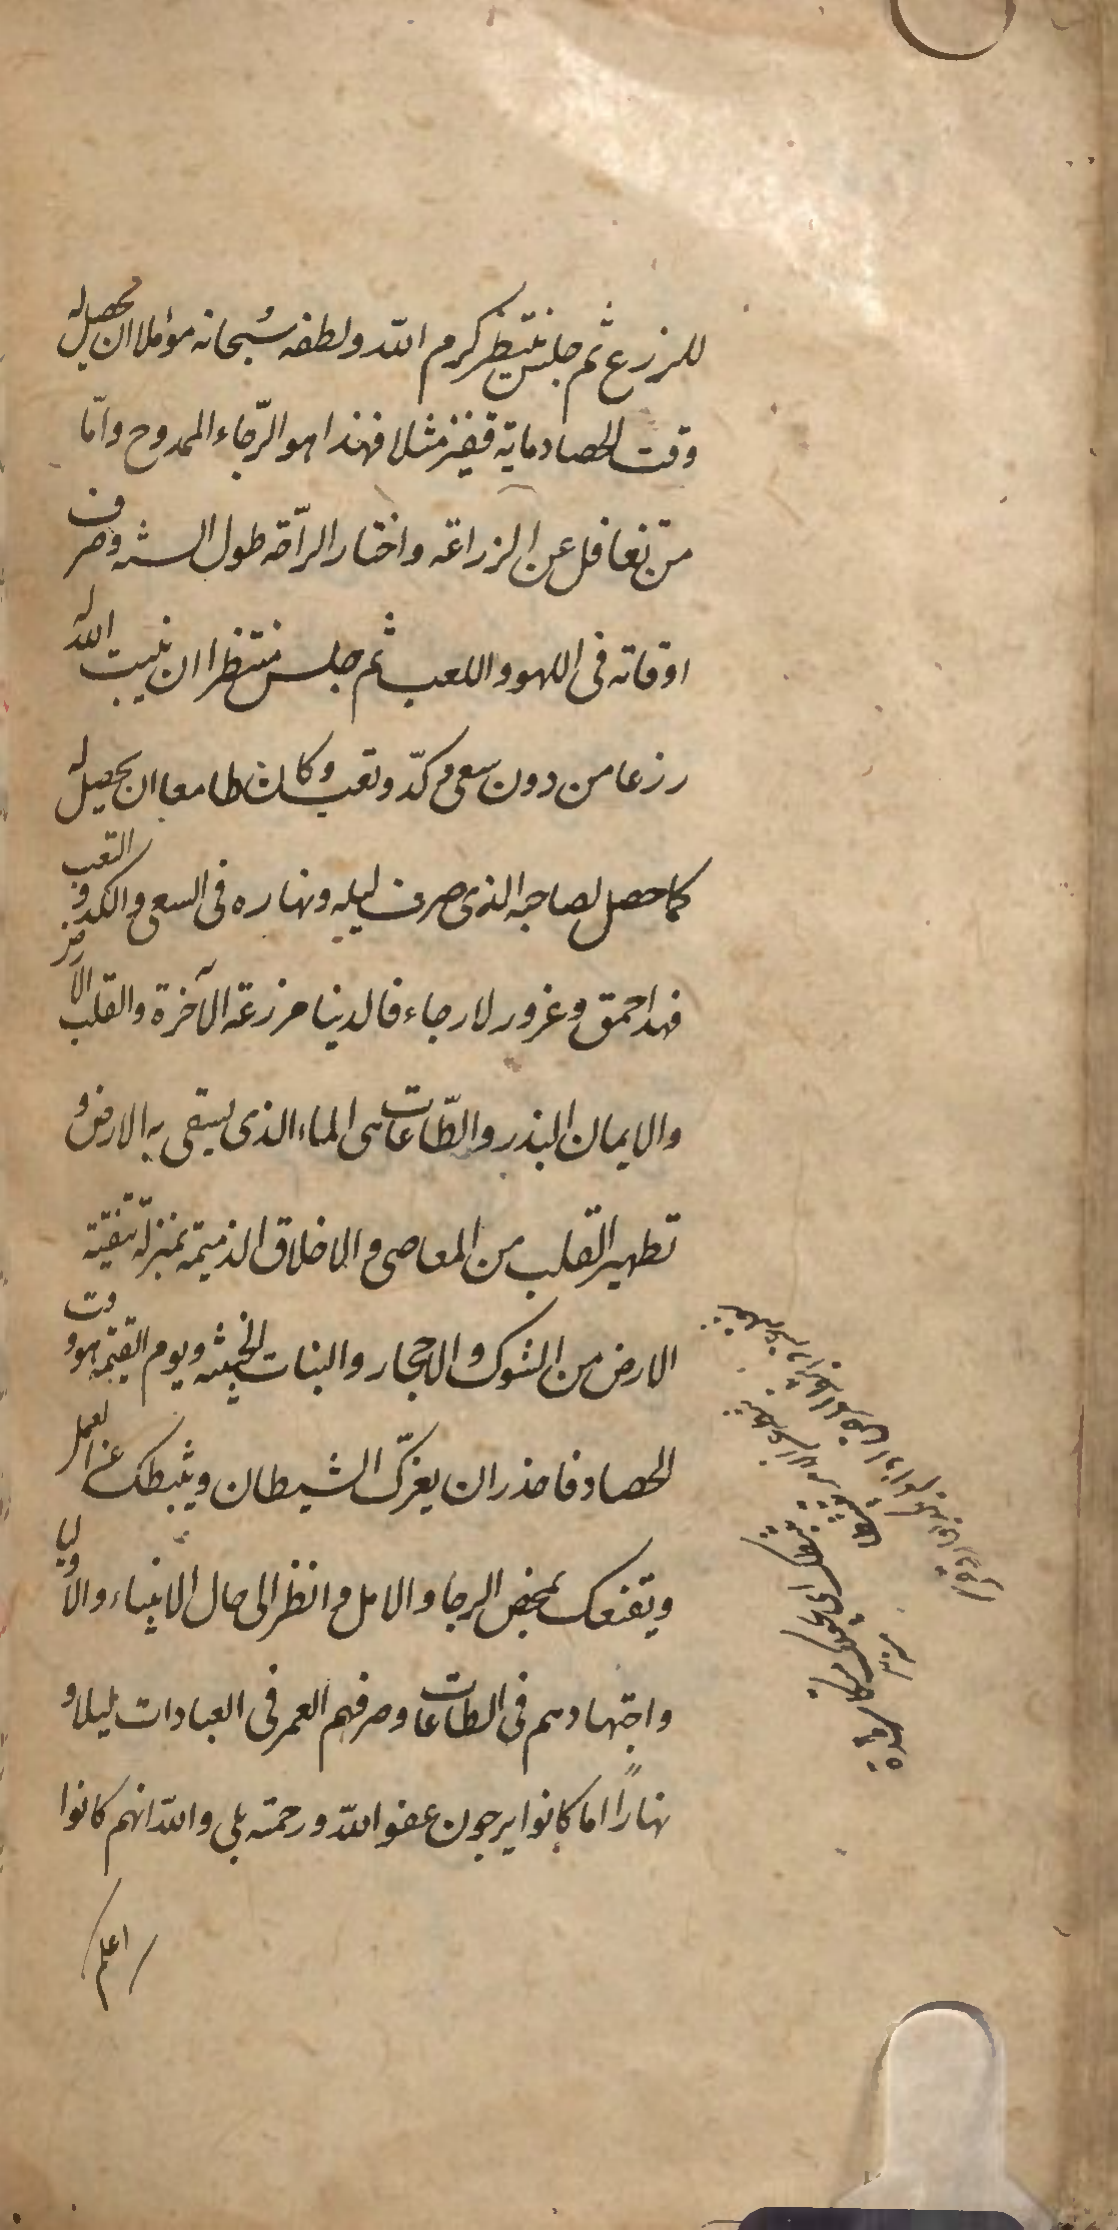 للزرع ثم جلس ينتظر كرم الله ولطفه سُبحانه مؤملا ان يحصل له
وقت الحصاد ماية قفيز مثلا فهذا هو الرّجاء الممدوح وامّا
من تغافل عن الزراعة واختار الرّاحة طول السنة وصرف
اوقاته فى اللهو واللعب ثم جلس منتظرا ان ينبت الله له
زرعا من دون سعى وكدّ وتعب وكان طامعا ان يحصل له
كما حصل لصاحبه الذى صرف ليله ونهاره فى السعى والكد والتعب
فهذا حمق وغرور لا رجاء فالدنيا مزرعة الآخرة والقلب الارض
والايمان البذر والطّاعات هى الماء الذى يسقى به الارض و
تطهير القلب من المعاصى والاخلاق الذميمة بمنزلة تنقية
الارض من الشوك والاحجار والنبات الخبيثة ويوم القيمة هو وقت
الحصاد فاحذر ان يغرّك الشيطان ويثبطك عن العمل
ويقنعك بمحض الرجا والامل وانظر الى حال الانبياء والاوليا
واجتهادهم فى الطاعات وصرفهم العمر فى العبادات ليلا و
نهارًا اما كانوا يرجون عفو الله ورحمته بلى والله انهم كانوا
اعلم